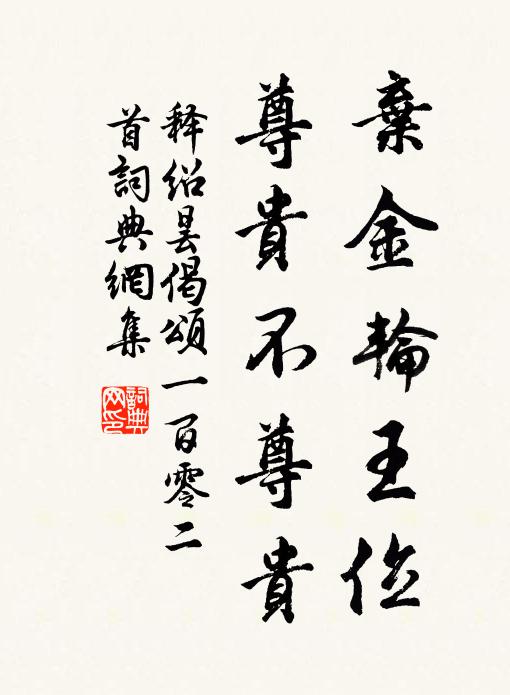 棄金輪王位
尊貴不尊貴
释紹昙偈頌一百零二
首詞典網集
詞典网印